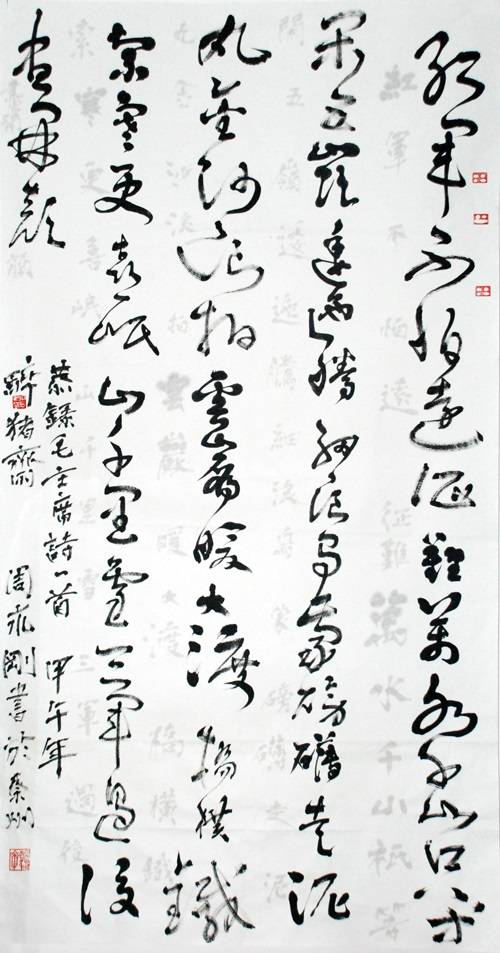 紅軍不怕遠征難萬水千山只等
閑五嶺逶迤騰細浪烏蒙磅礴走泥
丸金沙浪拍雲崖暖大渡橋橫鐵
索寒更喜岷山千里雪三軍過後
盡開顏
恭錄毛主席詩一首 甲午年
猪齋 周永剛書於秦州